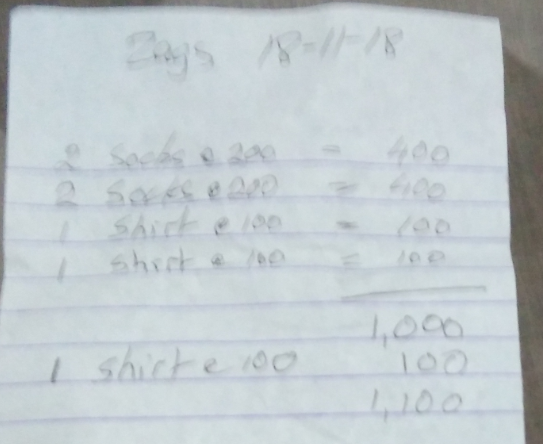 Zags 18-11-18
2 Socks @ 200 = 400
2 Socks @ 200 = 400
1 Shirt @ 100 = 100
1 Shirt @ 100 = 100
1,000
1 Shirt @ 100 100
1,100